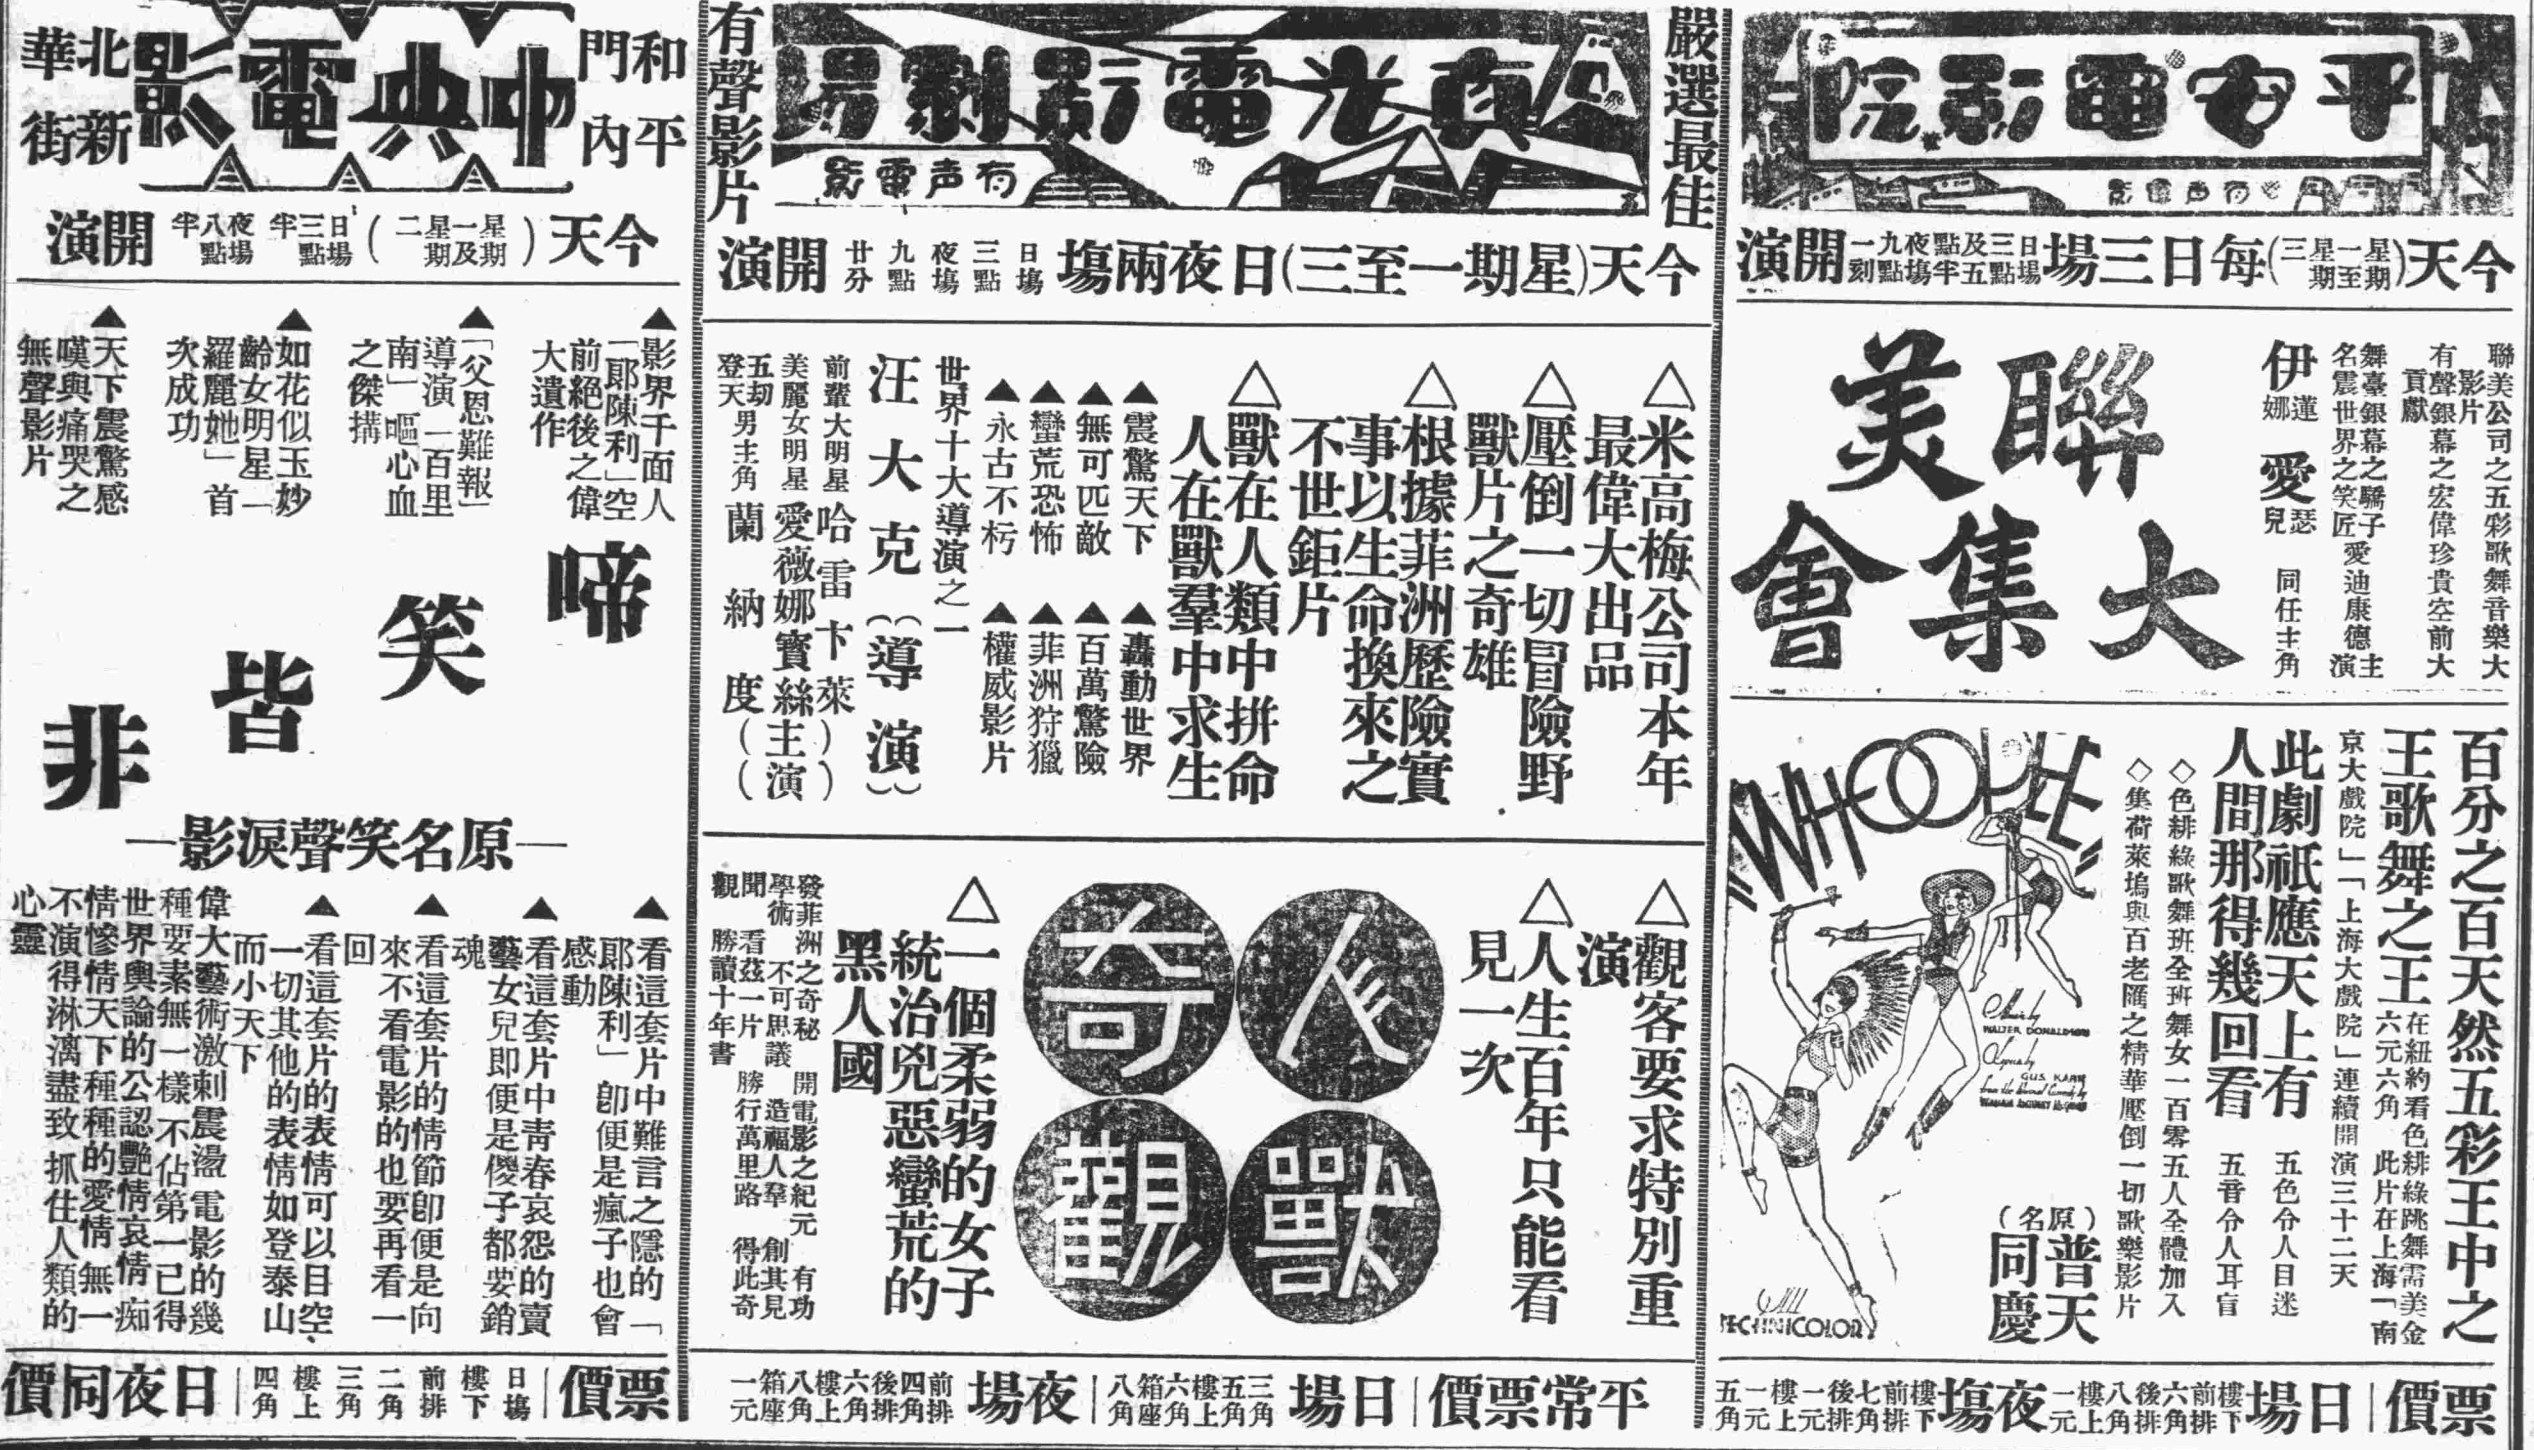 平安電影院
有声電影
今天(星期一至星期三)每日三場日場三點及五點半夜場九點一刻開演
聯美公司之五彩歌舞音樂大
影片
有聲銀幕之宏偉珍貴空前大
貢獻
舞臺銀幕之驕子 愛迪康德主
名震世界之笑匠 演
伊蓮娜 愛瑟兒 同任主角
聯美
大集會
百分之百天然五彩王中之
王歌舞之王在紐約看色緋綠跳舞需美金
六元六角 此片在上海「南
京大戲院」「上海大戲院」連續開演三十二天
此劇祇應天上有 五色令人目迷
人間那得幾回看 五音令人耳盲
◇色緋綠歌舞班全班舞女一百零五人全體加入
◇集荷萊塢與百老匯之精華壓倒一切歌樂影片
"WHOOPEE"
Music by
WALTER DONALDSON
Lyrics by
GUS KAHN
All
TECHNICOLOR
(原名)
普天
同慶
票價|日場樓下前排六角後排八角樓上一元夜場樓下前排七角後排一元樓上一元五角
嚴選最佳
真光電影劇場
有声電影
有聲影片
今天(星期一至三)日夜兩場日場三點夜場九點廿分開演
△米高梅公司本年
最偉大出品
△壓倒一切冒險野
獸片之奇雄
△根據菲洲歷險實
事以生命換來之
不世鉅片
△獸在人類中拼命
人在獸羣中求生
▲震驚天下 ▲轟動世界
▲無可匹敵 ▲百萬驚險
▲蠻荒恐怖 ▲菲洲狩獵
▲永古不朽 ▲權威影片
世界十大導演之一
汪大克(導演)
前輩大明星 哈雷卞萊
美麗女明星 愛薇娜寶絲(主演)
五刼登天男主角 蘭納度
△觀客要求特別重
演
△人生百年只能看
見一次
人獸
奇觀
△一個柔弱的女子
統治兇惡蠻荒的
黑人國
發菲洲之奇秘 開電影之紀元 有功
學術 不可思議 造福人羣 創其見
聞 看茲一片 勝行萬里路 得此奇
觀 勝讀十年書
平常票價|日場三角五角樓上六角箱座八角|夜場前排四角後排六角樓上八角箱座一元
和平門內
中央電影
北新華街
今天(星期一及星期二)日場三點半夜場八點半開演
▲影界千面人
「郎陳利」空
前絕後之偉
大遺作
▲「父恩難報」
導演「百里
南」嘔心血
之傑搆
▲如花似玉妙
齡女明星「
羅麗她」首
次成功
▲天下震驚感
嘆與痛哭之
無聲影片
啼笑皆非
—原名笑聲淚影—
▲看這套片中難言之隱的「
郎陳利」卽便是瘋子也會
感動
▲看這套片中靑春哀怨的賣
藝女兒即便是傻子都要銷
魂
▲看這套片的情節卽便是向
來不看電影的也要再看一
回
▲看這套片的表情可以目空
一切其他的表情如登泰山
而小天下
偉大藝術激刺震盪電影的幾
種要素無一樣不佔第一已得
世界輿論的公認艷情哀情痴
情慘情天下種種的愛情無一
不演得淋漓盡致抓住人類的
心靈
票價|日場樓下前排二角三角樓上四角|日夜同價